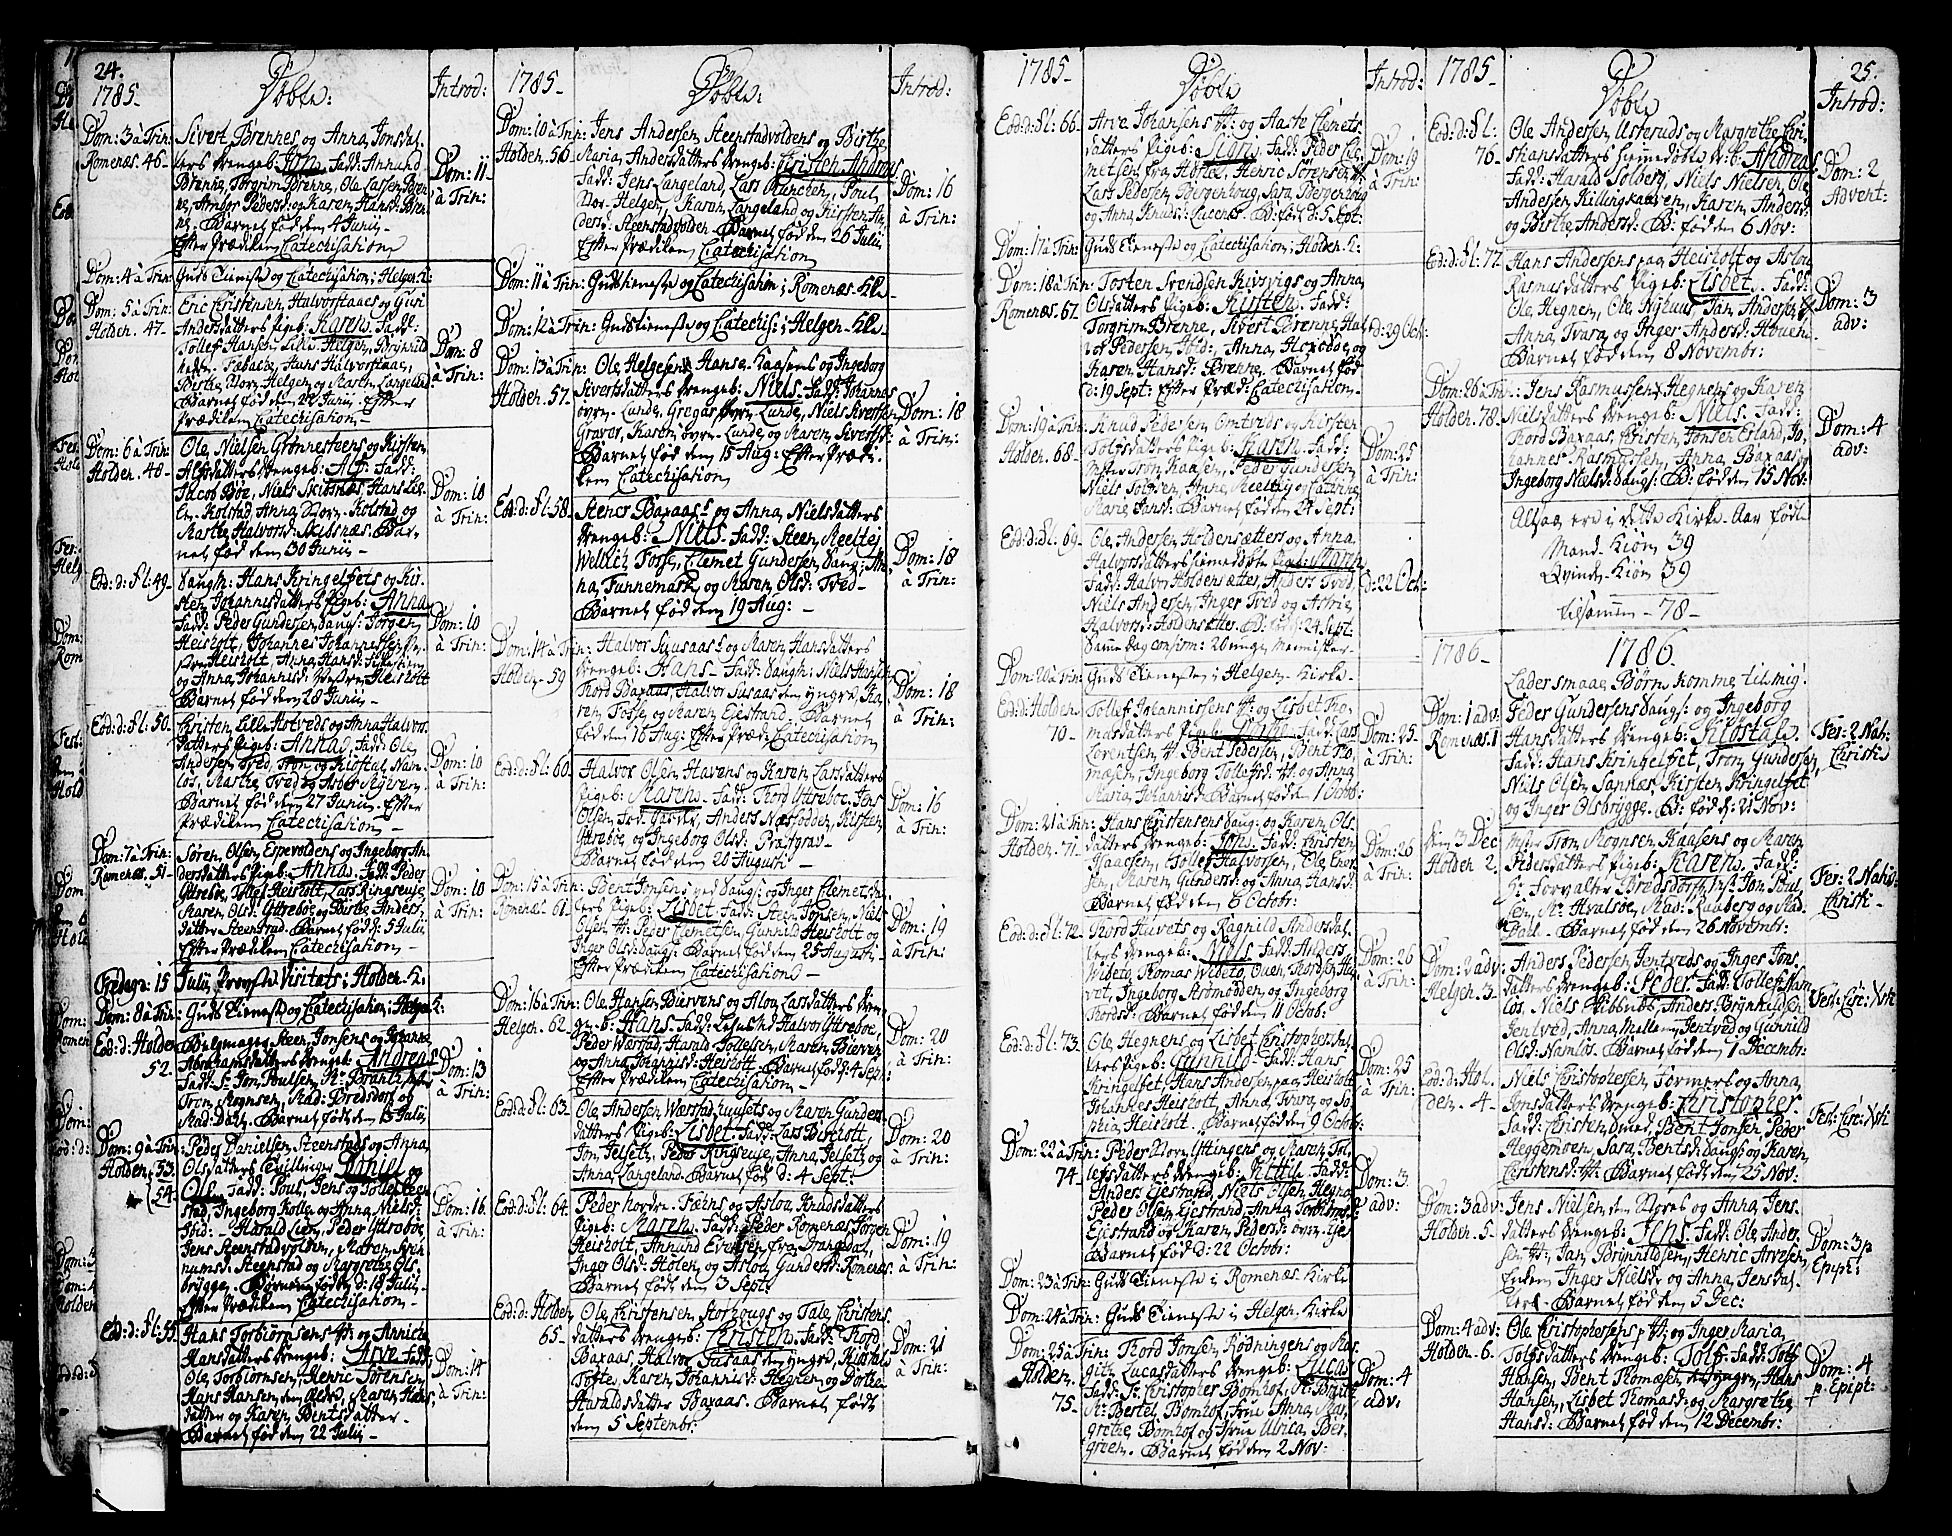 24.
1785.
Døbte.
Introd:
Dom: 3 à Trin:
Romenæs. 46.
Sivert Brennes og Anna Jonsdat-
ters drengeb: Jon. Fadd: Annund
Brenne, Torgrim Brenne, Ole Larsen Bren-
ne, Anger Pedersd: og Karen Hansd: Bren-
ne. Barnet fød den 4 Junii.
Efter Prædiken Catechisation
Dom: 11
à Trin:
Dom: 4 à Trin:
Guds Tieneste og Catechisation i Helgen K:
Dom: 5 à Trin:
Holden. 47.
Eric Christensen Halvorstaaes og Guri
Andersdatters Pigeb: Karen. Fadd:
Tollef Hansen Lille-Helgen, Brynild
Hans Halvorstaae,
Birthe Nor. Helgen og Marthe Langeland
Barnet fød den 22 Junii. Efter
Prædiken Catechisation
Dom: 8
à Trin:
Dom: 6 à Trin:
Holden. 48.
Ole Nielsen Grønnesteens og Kirsten
Alfsdatters drengeb: Alf. Fadd:
Jacob Bøe, Niels Skibsnæs, Hans Lil-
le. Kolstad, Anna Nor. Kolstad og
Marthe Halvorsd: Skibsnæs. Bar-
net fød den 30 Junii
Dom: 10
à Trin:
Eod: d: ibd: 49.
Saugm: Hans Kringelfets og Kir-
sten Johannisdatters Pigeb: Anna
Fadd: Peder Gundersen Saugs: Jørgen
Heisholt, Johannes Johannessen Ve-
stre Heisholt, Anna Hansd:
og Anna Johannisd: Vestre Heisholt
Barnet fød den 28 Junii
Dom: 10
à Trin:
Eod: d: ibd: 50.
Christen Lille Hotveds og Anna Halvors
datters Pigeb: Anna. Fadd: Ole
Andersen Tved, Tron og Kiøstal Nam-
løs, Marthe Tved og Aaber
Barnet fød den 27 Junii. Efter
Prædiken Catechisation
Dom: 10
à Trin:
Dom: 7 à Trin:
Romenæs. 51.
Søren Olsen Espevoldens og Ingeborg An-
dersdatters Pigeb: Anna. Fadd: Peder
Yttrebøe, Tollef Heisholt, Lars Ringseuje
Maren Olsd: Yttrebøe og Birthe Anders-
datter Steenstad. Barnet fød d: 5 Julii
Efter Prædiken Catechisation
Dom: 10
à Trin:
Fredagen 15 Julii, Provste Visitats i Holden K:
Dom: 8 à Trin:
Guds Tieneste og Catechisation i Helgen K:
Eod: d: Holden
52.
Bøygmager Steen Jonsens og Johanne
Abrahamsdatters drengeb: Andreas
Fadd: Sr Jon Poulsen, Mr Brantz,
Tron Mognsen, Mad: Bredsdorf og
Mad: Dahl. Barnet født den 13 Julii
Dom: 13
à Trin:
Dom: 9 à Trin:
Holden. 53.
54.
Peder Danielsen Steenstads og Anna
Olsdatters Tvillinger Daniel og
Ole. Fadd: Poul, Jens og Tollef Steen-
stad, Ingeborg Kolle og Anna Nielsd:
Ibid: - Harald Lien, Peder Yttrebøe,
Jens Steenstadvolden, Maren
numsd: Steenstad og Margrethe Ols-
brygge. Børnene fødte d: 18 Julii.
Efter Prædiken Catechisation
Dom: 16.
à Trin:
Eod: d: ibd: 55.
Hans Torbiørnsens H: og Annichen
Hansdatters drengeb: Arve. Fadd:
Ole Torbiørnsen, Henric Sørensen,
Hans Hansen den Eldre, Maren Hans-
datter og Karen Bentsdatter.
Barnet fød den 22 Julii
Dom: 14
à Trin:
1785.
Døbte:
Introd:
Dom: 10 à Trin:
Holden. 56.
Jens Andersen Steenstadvoldens og Birthe
Maria Andersdatters drengeb: Christen Andreas
Fadd: Jens Langeland, Lars Munchen, Poul
Nor. Helgen, Karen Langeland og Kirsten An-
dersd: Steenstadvolden. Barnet fød den 26 Julii
Efter Prædiken Catechisation
Dom: 16
à Trin:
Dom: 11 à Trin:
Gudstieneste og Catechisation i Romenæs K:
Dom: 12 à Trin:
Gudstieneste og Catechis: i Helgen K:
Dom: 13 à Trin:
Holden. 57.
Ole Helgesens Hanse-Kaasens og Ingeborg
Sivertsdatters drengeb: Niels. Fadd: Johannes
øvre-Lunde, Gregar øvre-Lunde, Niels Sivertsen
Graver, Karen øvre-Lunde og Maren Sivertsd:
Barnet fød den 15 Aug: Efter Prædi-
ken Catechisation
Dom: 18
à Trin:
Eod: d: ibd: 58.
Stenes Baxaas og Anna Nielsdatters
drengeb: Niels. Fadd: Steen Meeltej
Weldich Fosse, Clemet Gundersen Saug: An-
na Funnemark og Maren Olsd: Tved
Barnet fød den 19 Aug:
Dom: 18
à Trin:
Dom: 14 à Trin:
Holden. 59
Halvor Susaas og Maren Hansdatters
drengeb: Hans. Fadd: Saugm: Niels Hansen
Thord Baxaas, Halvor Susaas den yngre, Ka-
ren Fosse og Maren Ejestrand. Barnet
fød den 16 Aug: Efter Præd: Catechisation
Dom: 18
à Trin:
Eod: d: ibd: 60.
Halvor Olsen Havens og Karen Larsdatters
Pigeb: Maren. Fadd: Thord Yttrebøe, Jens
Olsen Jarsdlr, Anders Næsfodden, Kirsten
Yttrebøe og Ingeborg Olsd: Præstgrav
Barnet fød den 20 Augusti
Dom: 16
à Trin:
Dom: 15 à Trin:
Romenæs. 61.
Bent Jonsens ved Saugs: og Inger Clemetsdat-
ters Pigeb: Lisbet. Fadd: Steen Jonsen, Niels
Olsen H: Peder Clemetsen, Gunnild Heisholt og
Inger Olsd: Saugs: Barnet fød den 25 Augusti
Efter Prædiken Catechisation
Dom: 19
à Trin:
Dom: 16 à Trin:
Helgen. 62.
Ole Hansen Biervens og Aslou Larsdatters dren-
geb: Hans. Fadd: Lensmd Halvor Yttrebøe,
Peder Værstad, Harald Tollefsen, Maren Bierven
og Anna Johannisd: Heisholt. Barnet fød d: 4 Sept:
Efter Prædiken Catechisation
Dom: 20
à Trin:
Eod: d: ibd: 63.
Ole Andersen Værstadhuusets og Maren Gunders
datters Pigeb: Lisbet. Fadd: Lars Bisholt,
Jon Jelsetz, Peder Ringseuje, Anna Jelsetz og
Anna Langeland. Barnet fød d: 4 Sept:
Dom: 20
à Trin:
Eod: d: ibd: 64.
Peder nordre-Fæens og Aslou Knudsdatters
Pigeb: Maren. Fadd: Peder Romenæs, Jørgen
Heisholt, Annund Evensen fra Drangedal,
Inger Olsd: Holden og Aslou Gundersd: Romenæs
Barnet født den 3 Sept:
Dom: 19
à Trin:
Eod: d: Holden
65.
Ole Christensen Aarhougs og Tale Christens
datters drengeb: Christen. Fadd: Thord
Baxaas, Halvor Susaas den yngre, Harald
Tofte, Karen Johannisd: Hegnen og Dorthe
Haraldsdatter Baxaas. Barnet født
den 5 Septembr:
Dom: 21
à Trin:
1785.
Døbte
Introd:
Eod: d: ibd: 66.
Arve Johansens H: og Aaste Clemets-
datters Pigeb: Karen. Fadd: Peder Cle-
metsen fra Hoftæe, Henric Sørensen H:
Lars Pedersen Bergenhoug, Sara Bergenhoug
og Anna Knudsd: Lucens. B: fød d: 5 Sept:
Dom: 19
à Trin:
Dom: 17 à Trin:
Guds Tieneste og Catechisation i Holden K:
Dom: 18 à Trin
Romenæs. 67.
Tosten Svendsen Kisvigs og Anna
Olsdatters Pigeb: Kirsten. Fadd:
Torgrim Brenne, Sivert Brenne, Hal-
vor Pedersen Ibid:, Anna Hoxebøe og
Karen Hansd: Brenne. Barnet fød
d: 19 Sept: Efter Præd: Catechisation.
d: 29 Oct:
Dom: 19 à Trin:
Holden. 68.
Knud Pedersen Omtveds og Kirsten
Tolfsdatters Pigeb: Karen. Fadd:
Mstr Tron Kaasen, Peder Gundersen,
Niels Tolfsen, Anna Meeltej og Catrina
Marie Sand: Barnet fød den 24 Sept:
Dom: 25
à Trin:
Eod: d: ibd: 69.
Ole Andersen Holdensætters og Anna
Halvorsdatters hiemedøbte Pigeb: Maren
Fadd: Halvor Holdensætter, Anders Tved,
Niels Andersen, Inger Tved og Astrie
Halvorsd: Holdensætter. B: fød d: 24 Sept:
Samme dag confirm: 26 unge Mennisker
d: 22 Oct:
Dom: 20 à Trin:
Guds Tieneste i Helgen Kirke.
Eod: d: Holden
70.
Tollef Johannissens H: og Lisbet Tho-
masdatters Pigeb: Fadd: Lars
Lorentsen H: Bent Pedersen, Bent Tho-
masen, Ingeborg Tollefsd: H: og Anna
Maria Johannisd: Barnet fød den 1 Octob:
Dom: 25.
à Trin:
Dom: 21 à Trin:
Holden. 71.
Hans Christensens Saug: og Karen Ols-
datters drengeb: Jon. Fadd: Christen
Isaacsen, Tollef Halvorsen, Ole Thor-
sen, Karen Gundersd: og Anna Hansd:
Barnet fød den 6 Octobr:
Dom: 26
à Trin:
Eod: d: ibd: 72.
Thord Huvets og Ragnild Andersdat-
ters drengeb: Niels. Fadd: Anders
Wibeto, Thomas Wibeto, Ouen Thordsen Hu-
vet, Ingeborg Strømodden og Ingeborg
Thordsd: Barnet fød den 11 Octob:
Dom: 26
à Trin:
Eod: d: ibd: 73.
Ole Hegnens og Lisbet Christophersdat-
ters Pigeb: Gunnild. Fadd: Hans
Kringelfet, Hans Andersen paa Heisholt,
Johannes Heisholt, Anna Tvara og So-
phia Heisholt. Barnet fød den 9 Octob:
Dom: 25
à Trin:
Dom: 22 à Trin:
74.
Peder Nor: Ytingens og Maren Tol-
lefsdatters drengeb: Kittil. Fadd:
Anders Ejestrand, Niels Olsen Hegna
Peder Olsen Ejestrand, Anna Torbiørnsd:
Ejestrand og Karen Pedersd: øvre. Eje
Barnet fød d: 22 Octobr:
Dom: 3.
adv:
Dom: 23 à Trin:
Guds Tieneste i Romenæs Kirke
Dom: 24 à Trin:
Guds Tieneste i Helgen Kirke
Dom: 25 à Trin:
Holden.
75.
Thord Jonsen Rødningens og Mar-
githe Lucasdatters drengeb: Lucas
Fadd: Sr Christopher Bomhof, Mr Brantz
Mr Bertel Bomhof, Frue Anna Mar-
grethe Bomhof og Frue Ulrica Ber-
green. Barnet fød den 2 Nov:
Dom: 4
adv:
1785.
Døbte
25.
Introd:
Eod: d: ibd:
76.
Ole Andersen Usteruds og Margrethe Chri-
stiansdatters hiemedøbte d: b: Andreas
Fadd: Harald Solberg, Niels Nielsen, Ole
Andersen Killingkaasen, Karen Andersd:
og Birthe Andersd: B: fød den 6 Nov:
Dom: 2
Advent:
Eod: d: ibd: 77.
Hans Andersens paa Heisholt og Aslou
Rasmusdatters Pigeb: Lisbet. Fadd:
Ole Hegnen, Ole Nyhuus, Jan Andersen,
Anna Tvara og Inger Andersd: Houen
Barnet fød den 8 Novembr:
Dom: 3
adv:
Dom: 26 à Trin:
Holden. 78.
Jens Rasmussens Hegnens og Karen
Nielsdatters drengeb: Niels. Fadd:
Thord Baxaas, Christen Jonsen Eiland, Jo-
hannes Rasmussen, Anna Baxaas og
Ingeborg Nielsd: Saugs: B: fød den 15 Nov:
Dom: 4
adv:
Altsaa ere i dette Kirke-Aar fødte
Mand-Kiøn 39
Qvinde-Kiøn 39
tilsamen - 78
1786.
1786.
Lader smaae Børn komme til mig!
Dom: 1 adv:
Romenæs. 1
Peder Gundersens Saugs: og Ingeborg
Hansdatters drengeb: Kiøstal.
Fadd: Hans Kringelfet, Tron Gundersen,
Niels Olsen Sannæs, Kirsten Kringelfet
og Inger Olsbrygge. B: fød d: 21 Nov:
Fer: 2 Nat:
Christi
den 3 Dec
Holden 2.
Mstr Tron Mognsen Kaasens og Maren
Pedersdatters Pigeb: Karen. Fadd:
Sr Forvalter Bredsdorff, Sr Jon Poul-
sen, Mr Hvalsøe, Mad: Raaberg og Mad:
Dahl. Barnet fød den 26 Novembr:
Fer: 2 Nativ:
Christi
Dom: 2 adv:
Helgen. 3.
Anders Pedersen Jentveds og Inger Jons-
datters drengeb: Peder. Fadd: Tollef Nam-
løs, Niels Skibsnæs, Anders Brynhildsen
Jentved, Anna Mellem Jentved og Gunnild
Olsd: Namløs. Barnet fød den 1 Decembr:
Fest: Circ: Xsti
Eod: d: Hol-
den. 4.
Niels Christophersen Tormers og Anna
Jonsdatters drengeb: Christopher.
Fadd: Christen Smed, Bent Jonsen, Peder
Heggemoen, Sara Bentsd: Saugs: og Karen
Christensd: H: Barnet født den 25 Nov:
Fest: Circ: Xsti
Dom: 3 adv:
Holden 5.
Jens Nielsen den Yngres og Anna Jens-
datters drengeb: Jens. Fadd: Ole Ander-
sen H: Jan Brynnildsen, Henric Arvesen,
Enken Inger Nielsd: og Anna Jensdat-
ter. Barnet fød den 5 Dec:
Dom: 3 p
Epipt:
Dom: 4 adv:
Holden. 6.
Ole Christophersens H: og Inger Maria
Tolfsdatters drengeb: Tolf. Fadd: Tolf
Hansen, Bent Thomæsen yngre, Hans
Hansen, Lisbet Thomasd: og Margrethe
Hansd: Barnet fød den 12 Decembr:
Dom: 4
p. Epipt: